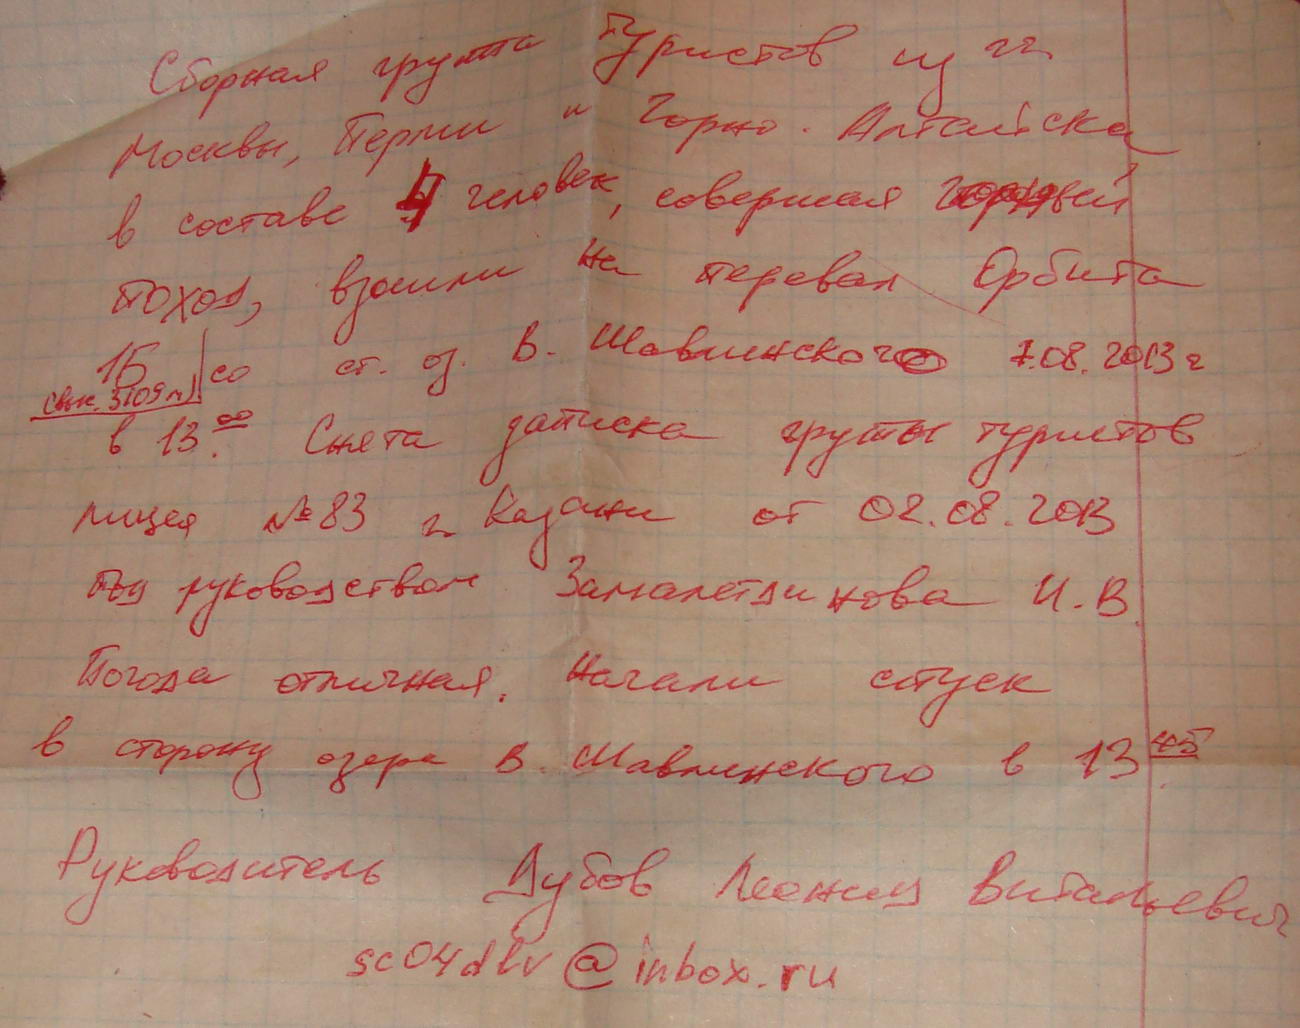 Сборная группа туристов из гг.
Москвы, Перми и Горно-Алтайска
в составе 4 человек, совершая горный
поход, взошли на перевал Орбита
1Б со ст. оз. В. Шавлинского 7.08.2013 г
(выс. 3109 м)
в 13.00 Снята записка группы туристов
лицея №83 г. Казани от 02.08.2013
под руководством Замалетдинова И.В.
Погода отличная. Начали спуск
в сторону озера В. Шавлинского в 13 45
Руководитель Дубов Леонид Витальевич
sc04dlv@inbox.ru